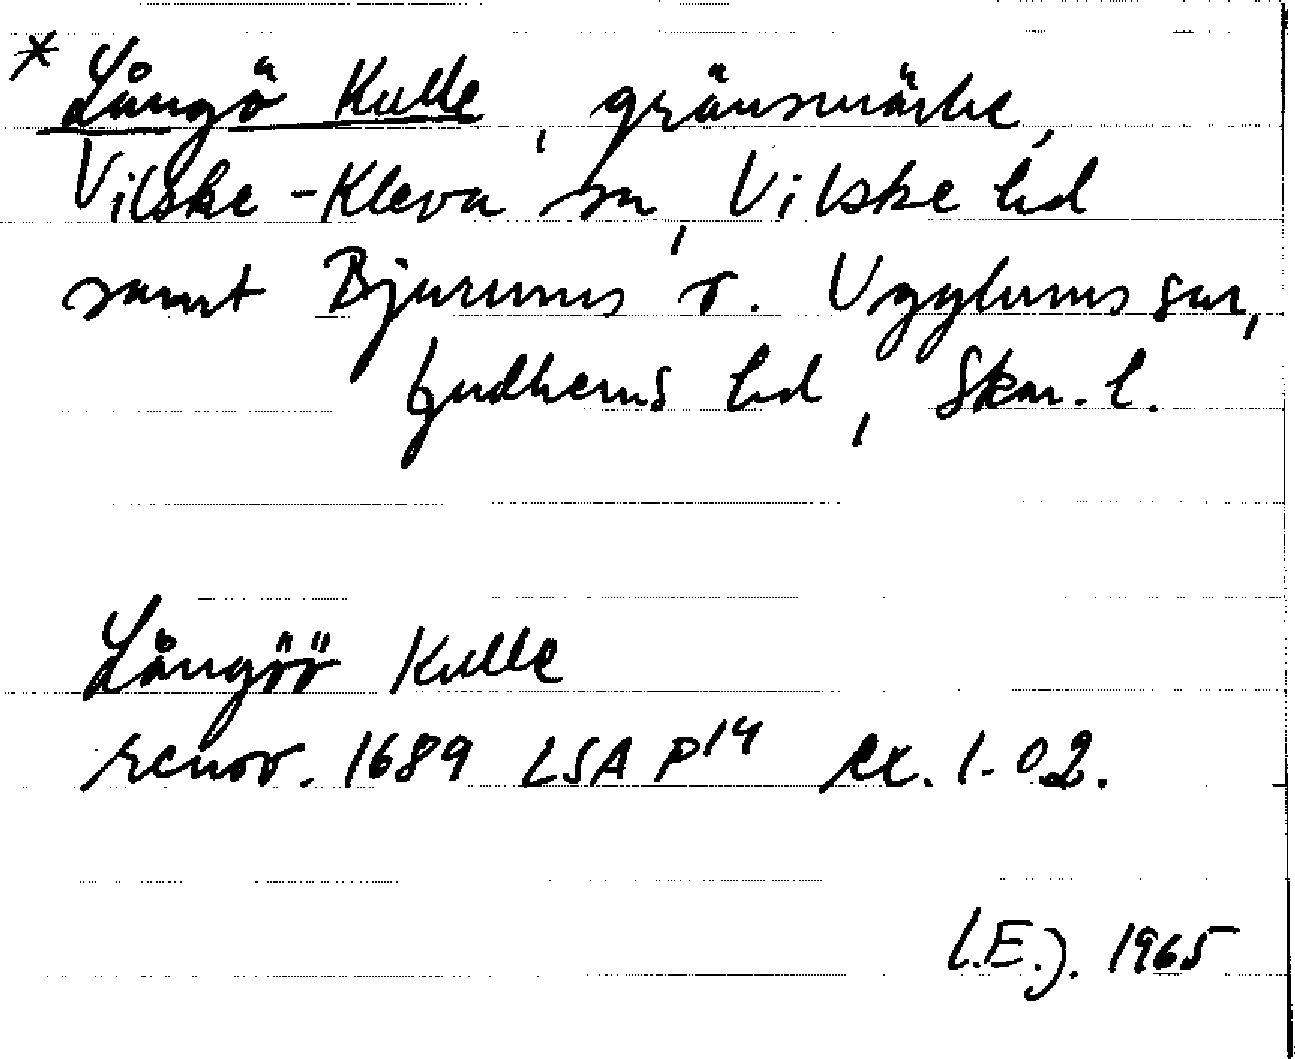 * Långö Kulle, gränsmärke,
Vilske-Kleva sn, Vilske hd
samt Bjurums o. Ugglums snr,
Gudhems hd, Skar. l.
Långöö Kulle
renov. 1689 LSA P14 ex. 1.02.
L.E.J. 1965